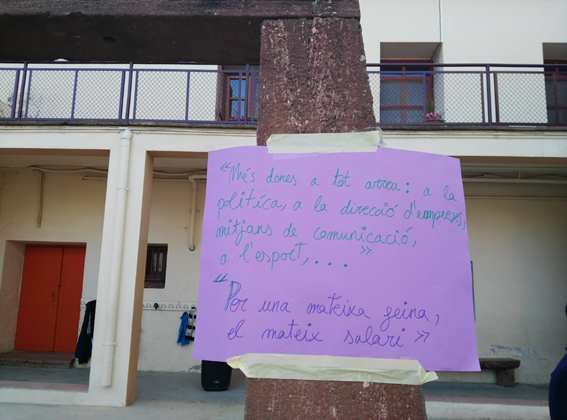 "Més dones a tot arreu: a la
política, a la direcció d'empreses,
mitjans de comunicació,
a l'esport,..."
"Per una mateixa feina,
el mateix salari"